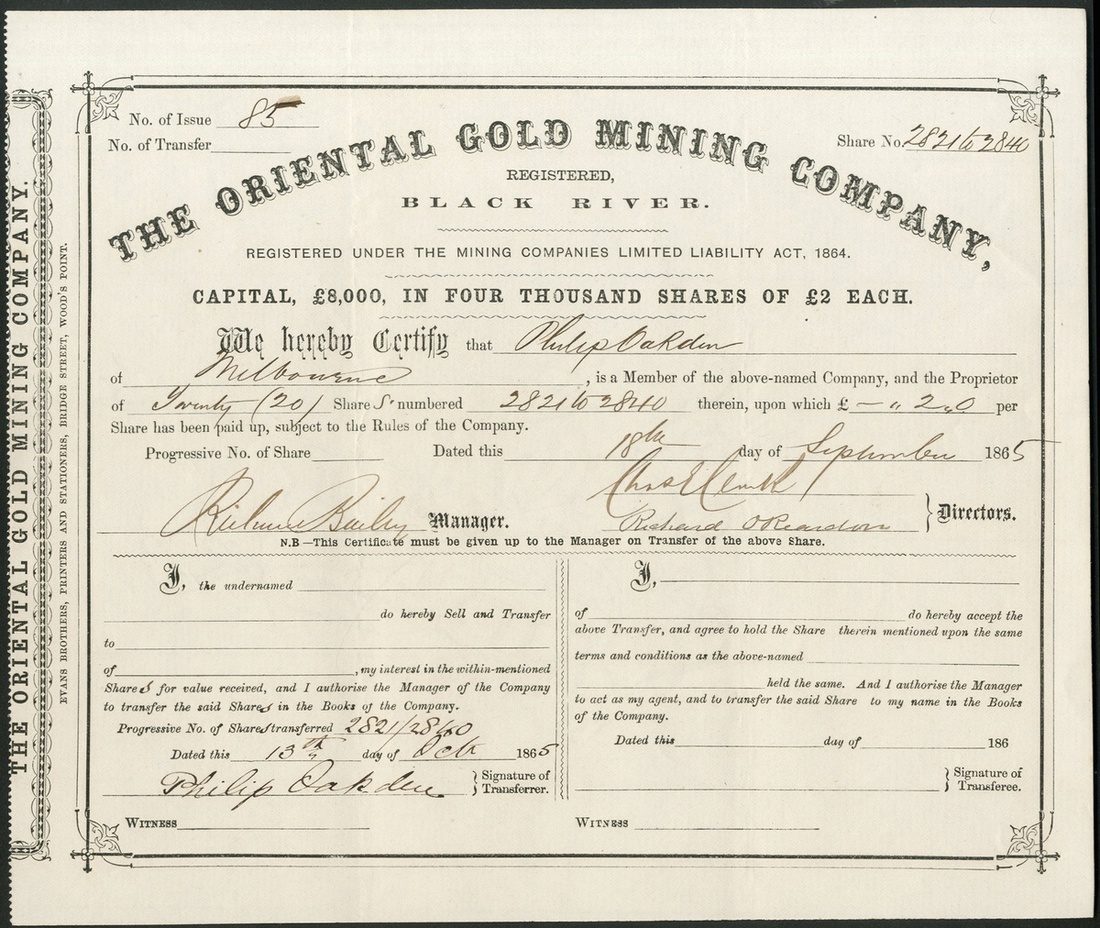 THE ORIENTAL GOLD MINING COMPANY.
EVANS BROTHERS, PRINTERS AND STATIONERS, BRIDGE STREET, WOOD'S POINT.
No. of Issue 85
No. of Transfer
Share No. 2821 to 2840
THE ORIENTAL GOLD MINING COMPANY,
REGISTERED,
BLACK RIVER.
REGISTERED UNDER THE MINING COMPANIES LIMITED LIABILITY ACT, 1864.
CAPITAL, £8,000, IN FOUR THOUSAND SHARES OF £2 EACH.
We hereby Certify that Philip Oakden
of Melbourne, is a Member of the above-named Company, and the Proprietor
of Twenty (20) Share S numbered 2821 to 2840 therein, upon which £ — " 2 " 0 per
Share has been paid up, subject to the Rules of the Company.
Progressive No. of Share Dated this 18th day of September 1865
Richard Manager.
Richard O'Reardon Directors.
N.B—This Certificate must be given up to the Manager on Transfer of the above Share.
I, the undernamed
do hereby Sell and Transfer
to
of , my interest in the within-mentioned
Shares for value received, and I authorise the Manager of the Company
to transfer the said Shares in the Books of the Company.
Progressive No. of Shares transferred 2821/2840
Dated this 13th day of Oct 1865
Philip Oakden
Signature of
Transferrer.
WITNESS
I,
of do hereby accept the
above Transfer, and agree to hold the Share therein mentioned upon the same
terms and conditions as the above-named
held the same. And I authorise the Manager
to act as my agent, and to transfer the said Share to my name in the Books
of the Company.
Dated this day of 186
Signature of
Transferee.
WITNESS